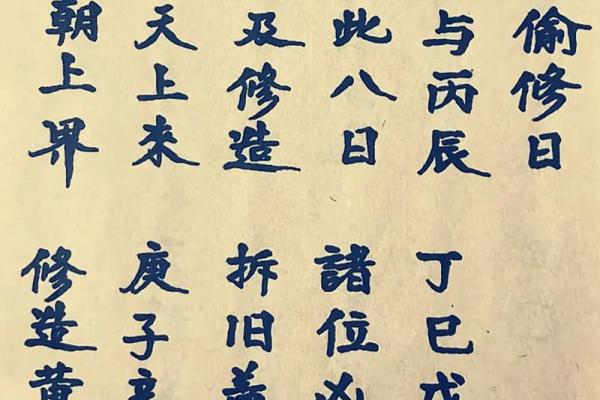 偷修日
与丙辰 丁巳戊
此八日 諸位凶
及修造 拆旧盖
天上来 庚子辛
朝上界 修造黄